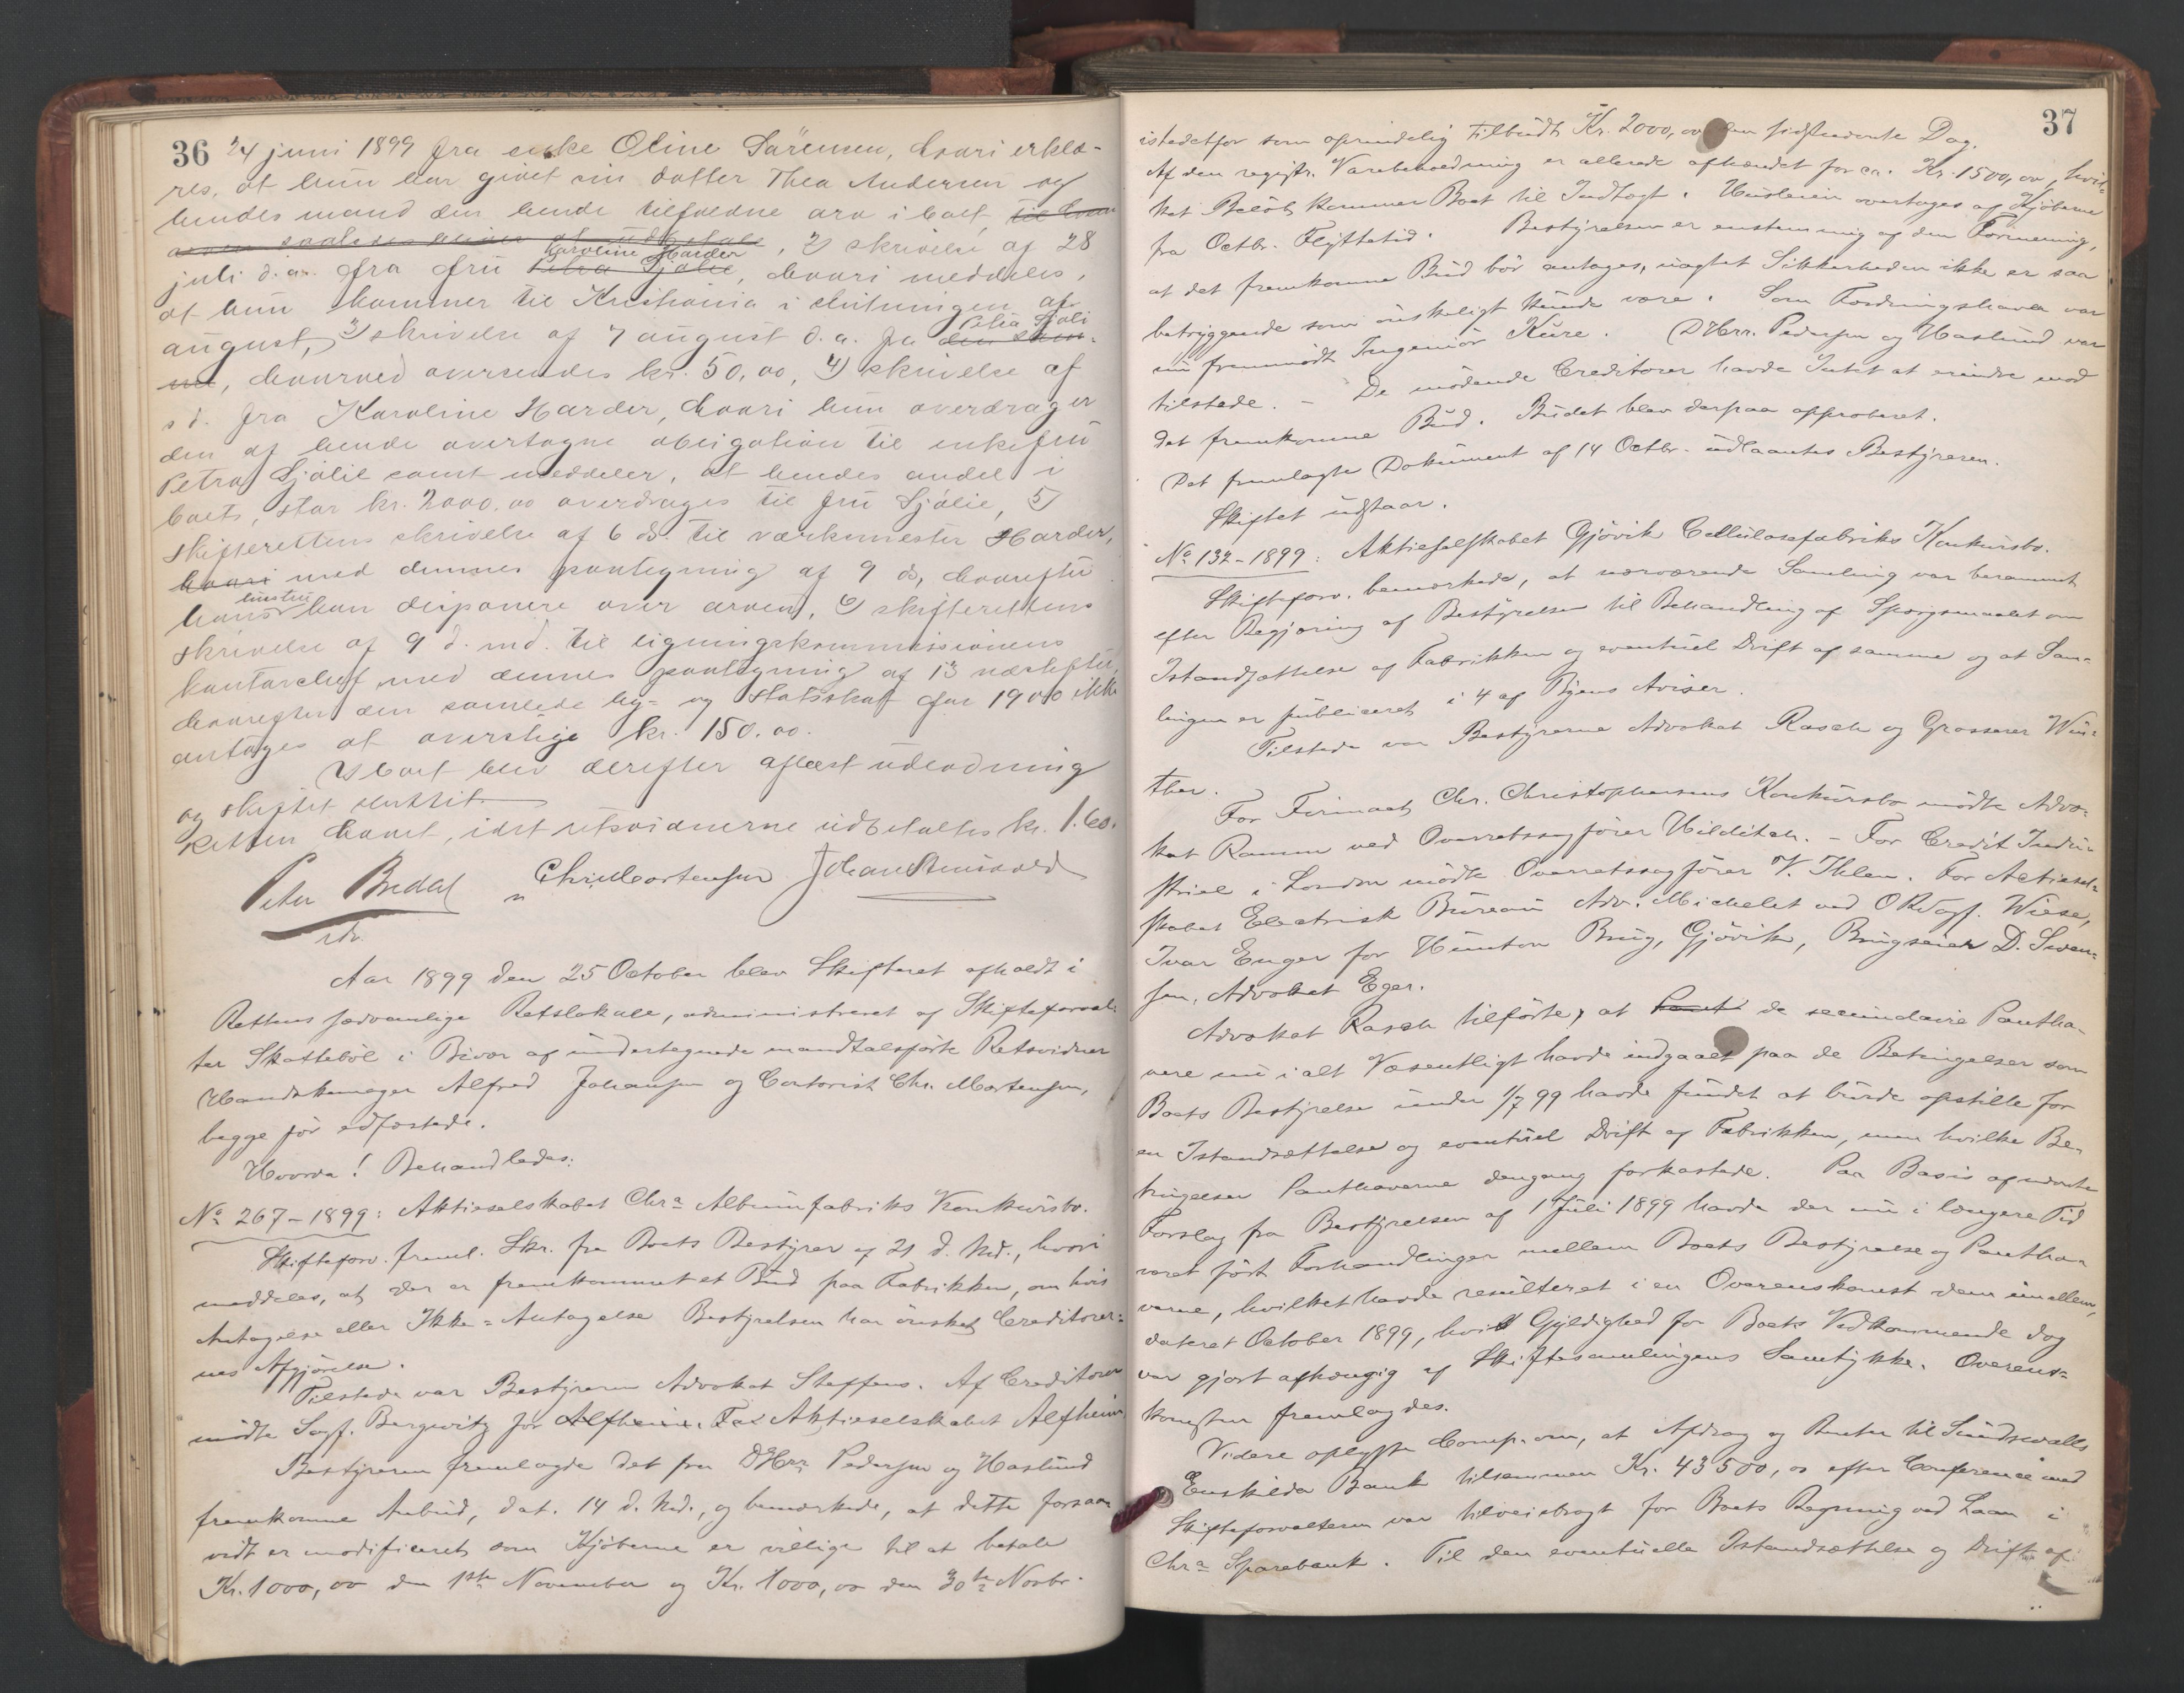 36
24 juni 1899 fra enke Oline Sørensen, hvori erklæ-
res, at hun har givet sin datter Thea Andersen og
hendes mand den hende tilfaldne arv i boet, til hvem
arven saaledes bliver at udbetale, 2) skrivelse af 28
Karoline Harder
juli d. a. fra fru Petra Sjølie, hvori meddeles,
at hun kommer til Kristiania i slutningen af
Petra Sjøli
august, 3) skrivelse af 7 august d. a. fra den sam-
me, hvorved oversendes kr. 50,00, 4) skrivelse af
s d. fra Karoline Harder, hvori hun overdrager
den af hende overtagne obligation til enkefru
Petra Sjølie samt meddeler, at hendes andel i
boets, stor kr. 2000.00 overdrages til fru Sjølie, 5)
skifterettens skrivelse af 6 ds. til værksmester Harder,
hvori med dennes paategning af 9 ds, hvorefter
hustru
hans kan disponere over arven, 6) skifterettens
skrivelse af 9 d. md. til ligningskommissionens
kontorchef med dennes paategning af 13 næstefter,
hvorefter den samlede by- og statsskat for 1900 ikke
antages at overstige kr. 150.00.
I boet blev derefter aflæst udlodning
og skiftet sluttet.
Retten hævet, idet retsvidnerne udbetaltes kr. 1.60.
Peter Bredal Chr. Mortensen Johan
Aar 1899 den 25 October blev Skifteret afholdt i
Rettens sædvanlige Retslokale, administreret af Skifteforval-
ter Skattebøl i Bivær af undertegnede mandtalsførte Retsvidner
Handskemager Alfred Johansen og Contorist Chr. Mortensen,
begge før edfæstede.
Hvorda! Behandledes:
No 267-1899: Aktieselskabet Chra Albumfabriks Konkursbo.
Skifteforv. freml. Skr. fra Boets Bestyrer af 21 d. Md., hvori
meddeles, at der er fremkommet et Bud paa Fabrikken, om hvis
Antagelse eller Ikke-Antagelse Bestyrelsen har ønsket Creditorer-
nes Afgjørelse.
Tilstede var Bestyreren Advokat Steffens. Af Creditorer
mødte Sagf. Bergwitz for Alfheim. For Aktieselskabet Alfheim
Bestyreren fremlagde det fra DHrr. Pedersen og Haslund
fremkomne Anbud, dat. 14 d. Md., og bemærkede, at dette forsaa-
vidt er modificeret som Kjøberne er villige til at betale
Kr. 1000,00 den 1ste November og Kr. 1000,00 den 30te Novbr.
37
istedetfor som oprindelig tilbudt Kr. 2000,00 den sidstnævnte Dag.
Af den registr. Varebeholdning er allerede afhændet for ca. Kr. 1500,00, hvil-
ket Beløb kommer Boet til Indtægt. Husleien overtages af Kjøberne
fra Octbr. Flyttetid. Bestyrelsen er enstemmig af den Formening,
at det fremkomne Bud bør antages, uagtet Sikkerheden ikke er saa
betryggende som ønskeligt kunde være. Som Fordringshaver var
nu fremmødt Ingeniør Kure. DHrr. Pedersen og Haslund var
tilstede. - De mødende Creditorer havde Intet at erindre mod
det fremkomne Bud. Budet blev derpaa approberet.
Det fremlagte Dokument af 14 Octbr. udlaantes Bestyreren.
Skiftet udstaar.
No 132-1899: Aktieselskabet Gjøvik Cellulosefabriks Konkursbo.
Skifteforv. bemærkede, at nærværende Samling var berammet
efter Begjæring af Bestyrelsen til Behandling af Spørgsmaalet om
Istandsættelse af Fabrikken og eventuel Drift af samme og at Sam-
lingen er publiceret i 4 af Byens Aviser.
Tilstede var Bestyrerne Advokat Rasch og Grosserer Win-
ther.
For Firmaet Chr. Christophersens Konkursbo mødte Advo-
kat Ramm ved Overretssagfører Hilditch. - For Credit Indu-
striel i London mødte Overretssagfører V. Ihlen. For Actiesel-
skabet Electrisk Bureau Adv. Michelet ved ORsagf. Wiese,
Ivar Enger for Hunton Brug, Gjøvik, Brugseier D. Swen-
sen, Advokat Eger.
Advokat Rasch tilførte, at Pant de secundaire Pantha-
vere nu i alt Væsentligt havde indgaaet paa de Betingelser som
Boets Bestyrelse under 1/7 99 havde fundet at burde opstille for
en Istandsættelse og eventuel Drift af Fabrikken, men hvilke Be-
tingelser Panthaverne dengang forkastede. Paa Basis af nævnte
Forslag fra Bestyrelsen af 1 Juli 1899 havde der nu i længere Tid
været ført Forhandlinger mellem Boets Bestyrelse og Pantha-
verne, hvilket havde resulteret i en Overenskomst dem imellem,
dateret October 1899, hvis Gyldighed for Boets Vedkommende dog
var gjort afhængig af Skiftesamlingens Samtykke. Overens-
komsten fremlagdes.
Videre oplyste Comp. om, at Afdrag og Renter til Sundsvalls
Enskilda Bank tilsammen Kr. 43500,00 efter Conference med
Skifteforvalteren var tilveiebragt for Boets Regning ved Laan i
Chra Sparebank. Til den eventuelle Istandsættelse og Drift af